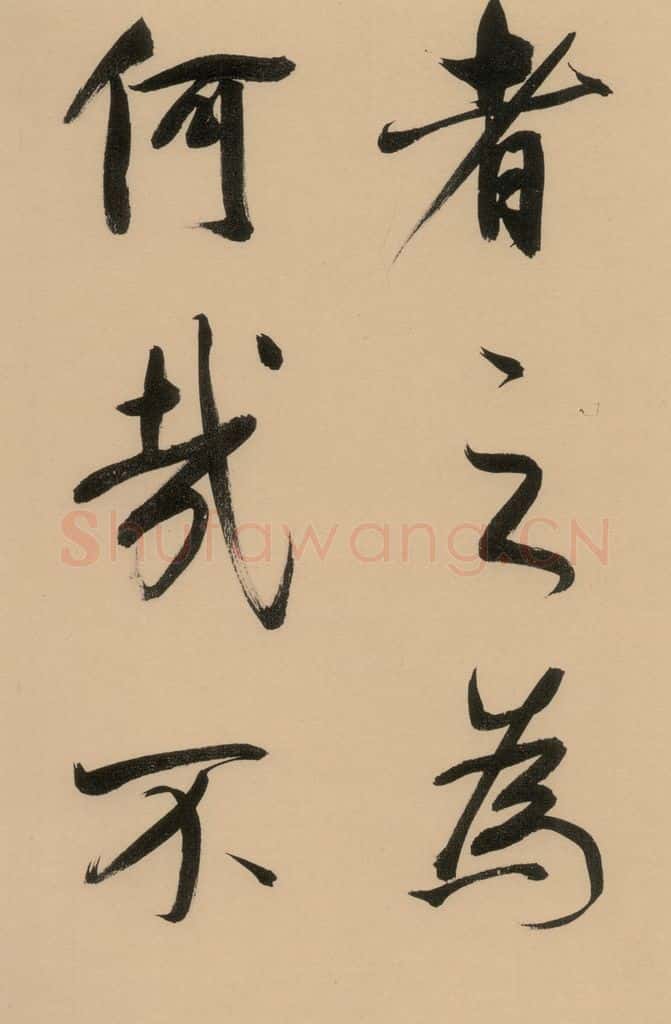 者之為
何哉不
Shufawang.CN